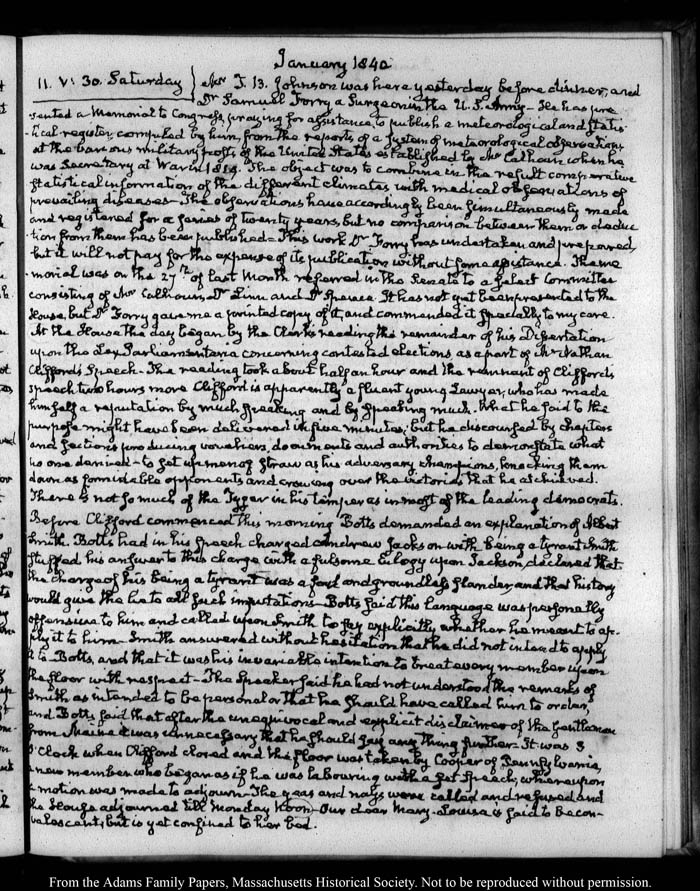 January 1840
11. V: 30. Saturday } Mr J. B. Johnson was here yesterday before dinner, and
Dr Samuel Forry a Surgeon in the U.S. Army — He has pre
sented a Memorial to Congress, praying for assistance, to publish a meteorological and statis-
-tical register, compiled by him, from the reports of a system of meteorological observations
at the various military posts of the United States established by Mr Calhoun when he
was Secretary at War in 1819. The object was to combine in the result comparative
statistical information of the different climates with medical observations of
prevailing diseases — The observations have accordingly been simultaneously made
and registered for a series of twenty years, but no comparison between them or deduc
-tion from them has been published — This work Dr Forry has undertaken and prepared
but it will not pay for the expense of its publication without some assistance. The me
morial was on the 27th of last Month referred in the Senate to a select Committee
consisting of Mr Calhoun, Dr Linn and Dr Spence. It has not yet been presented to the
House, but Dr Forry gave me a printed copy of it, and commended it specially to my care.
At the House the day began by the Clerk's reading the remainder of his Dissertation
upon the Lex Parliamentaria concerning contested elections as a part of Mr Nathan
Clifford's Speech — The reading took about half an hour and the remnant of Clifford's
speech two hours more Clifford is apparently a fluent young Lawyer, who has made
himself a reputation by much speaking and by speaking much. What he said to the
purpose might have been delivered in five minutes, but he discoursed by chapters
and sections producing vouchers, documents and authorities to demonstrate what
no one denied — to set up men of straw as his adversary champions, knocking them
down as formidable opponents and crowing over the victories that he achieved.
There is not so much of the Tyger in his temper as in most of the leading democrats.
Before Clifford commenced this morning Botts demanded an explanation of Albert
Smith. Botts had in his speech charged Andrew Jackson with being a tyrant Smith
stuffed his answer to this charge with a fulsome eulogy upon Jackson, declared that
the charge of his being a tyrant was a foul and groundless slander, and that history
would give the lie to all such imputations — Botts said this language was personally
offensive to him and called upon Smith to say explicitly whether he meant to ap-
ply it to him — Smith answered without hesitation that he did not intend to apply
it to Botts, and that it was his invariable intention to treat every member upon
the floor with respect — The Speaker said he had not understood the remarks of
Smith, as intended to be personal or that he should have called him to order,
and Botts said that after the unequivocal and explicit disclaimer of the gentleman
from Maine it was unnecessary that he should say any thing further — It was 3
O'Clock when Clifford closed and the floor was taken by Cooper of Pennsylvania,
a new member who began as if he was labouring with a set speech, whereupon
a motion was made to adjourn — The yeas and nays were called and refused and
the House adjourned till Monday Noon — Our dear Mary-Louisa is said to be con-
valescent, but is yet confined to her bed.
From the Adams Family Papers, Massachusetts Historical Society. Not to be reproduced without permission.